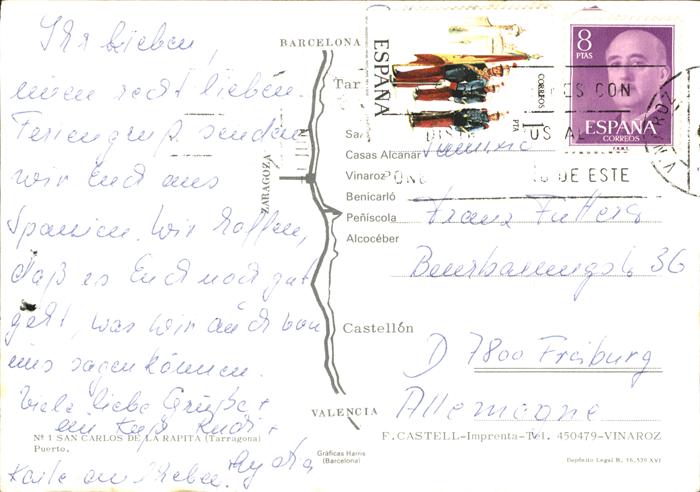 Ihr Lieben,
einen recht lieben
Feriengruß senden
wir Euch aus
Spanien. Wir hoffen,
daß es Euch noch gut
geht, was wir auch von
uns sagen können.
Viele liebe Grüße +
ein Kuß Rudi +
Karte
BARCELONA
Tar
Sa
Casas Alcanar
Vinaroz
Benicarló
Peñíscola
Alcocéber
Castellón
VALENCIA
ZARAGOZA
ESPAÑA
CORREOS
1 PTA
8
PTAS
ESPAÑA
CORREOS
F.N.M.T.
ES CON
US AL
PON
DE ESTE
Familie
Franz
36
D 7800 Freiburg
Allemagne
Nº 1 SAN CARLOS DE LA RAPITA (Tarragona)
Puerto.
Gráficas Harris
(Barcelona)
F. CASTELL-Imprenta-Tel. 450479-VINAROZ
Depósito Legal B. 16.520 XVI